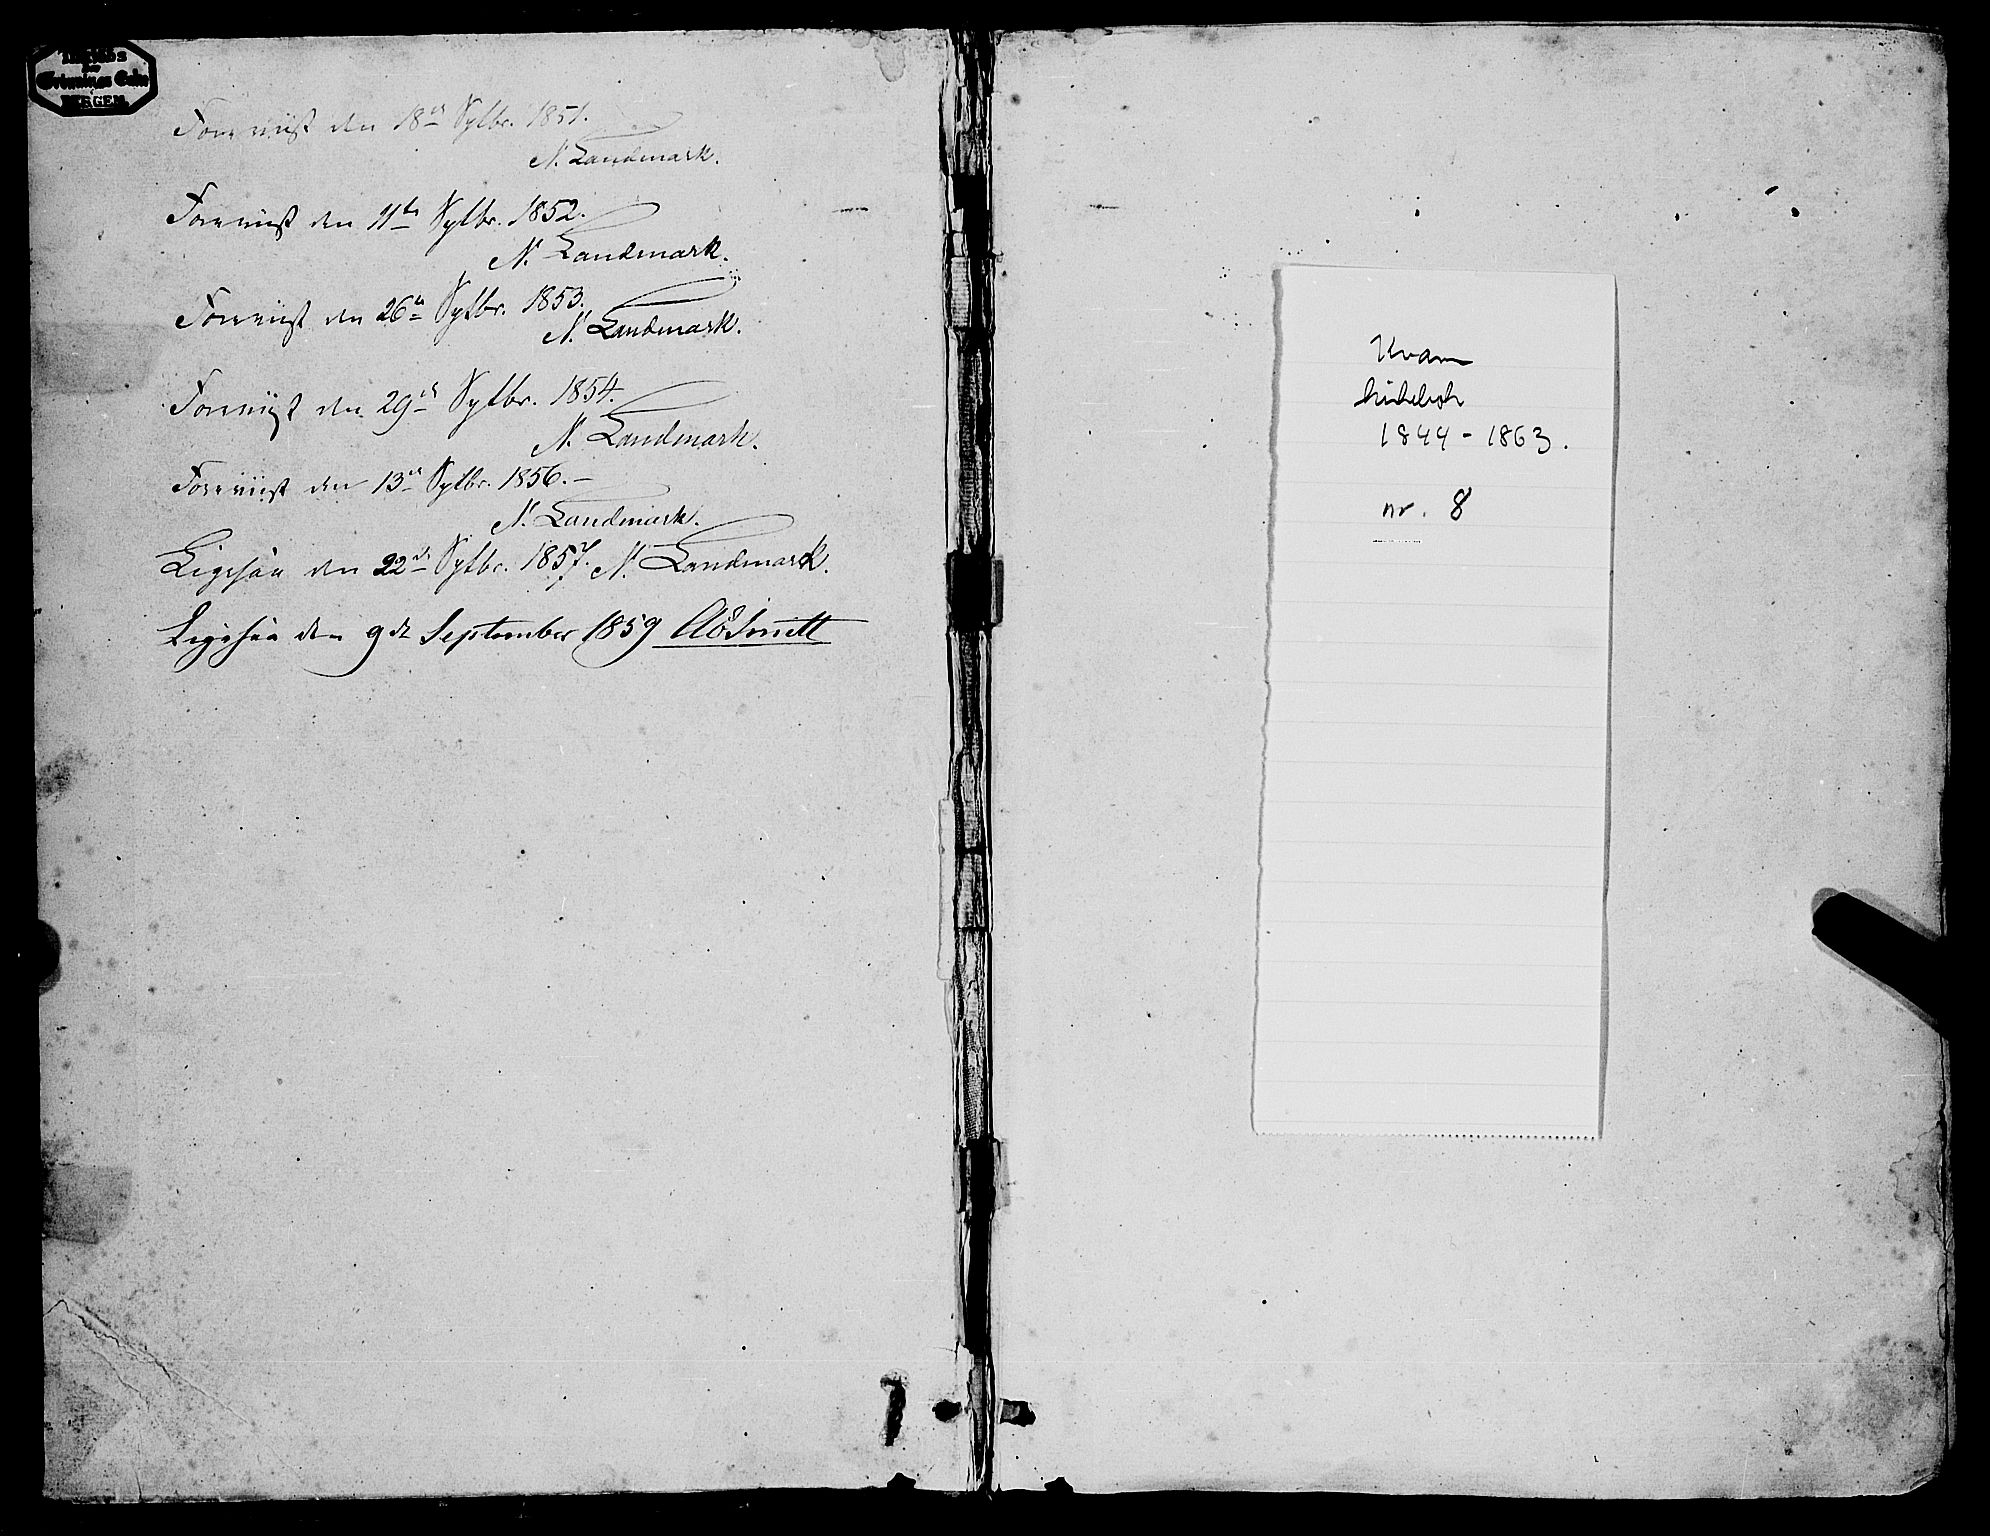 BERGEN.
Foreviist den 18de Septbr. 1851.
N. Landmark.
Foreviist den 11te Septbr. 1852.
N. Landmark.
Foreviist den 26de Septbr. 1853.
N. Landmark.
Foreviist den 29de Septbr. 1854.
N. Landmark.
Foreviist den 13de Septbr. 1856.-
N. Landmark.
Ligesaa den 22de Septbr. 1857. N. Landmark.
Ligesaa den 9de September 1859
Kvam
kirkebok
1844-1863.
nr. 8